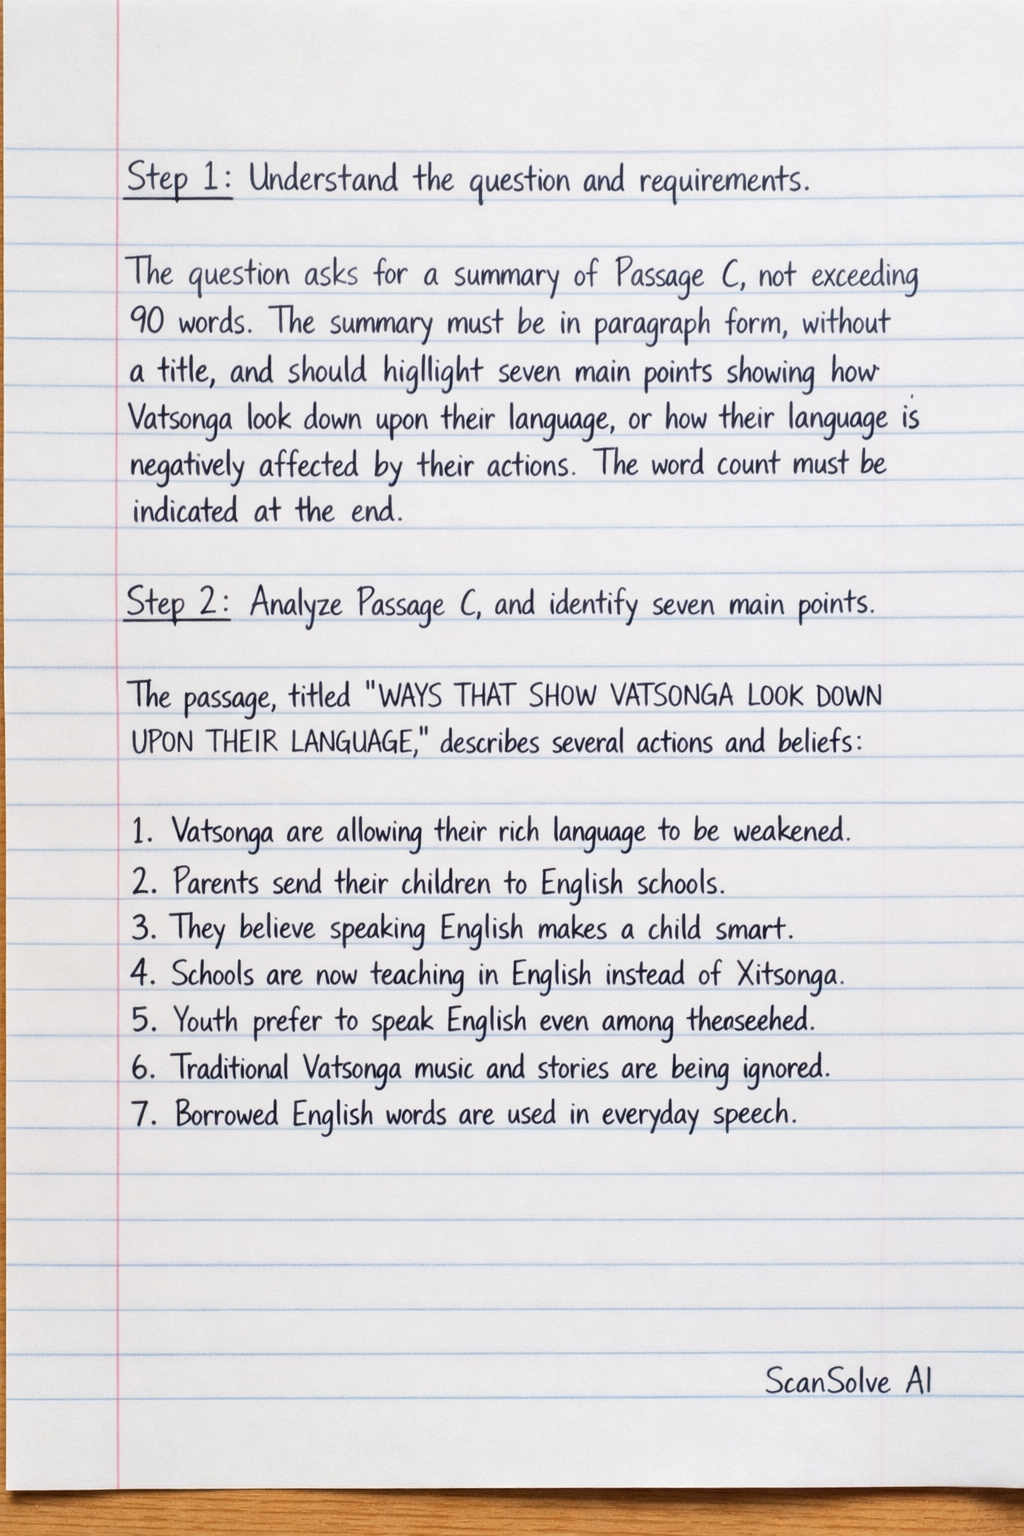 Step 1: Understand the question and requirements.
The question asks for a summary of Passage C, not exceeding
90 words. The summary must be in paragraph form, without
a title, and should higllight seven main points showing how
Vatsonga look down upon their language, or how their language is
negatively affected by their actions. The word count must be
indicated at the end.
Step 2: Analyze Passage C, and identify seven main points.
The passage, titled "WAYS THAT SHOW VATSONGA LOOK DOWN
UPON THEIR LANGUAGE," describes several actions and beliefs:
1. Vatsonga are allowing their rich language to be weakened.
2. Parents send their children to English schools.
3. They believe speaking English makes a child smart.
4. Schools are now teaching in English instead of Xitsonga.
5. Youth prefer to speak English even among
6. Traditional Vatsonga music and stories are being ignored.
7. Borrowed English words are used in everyday speech.
ScanSolve AI